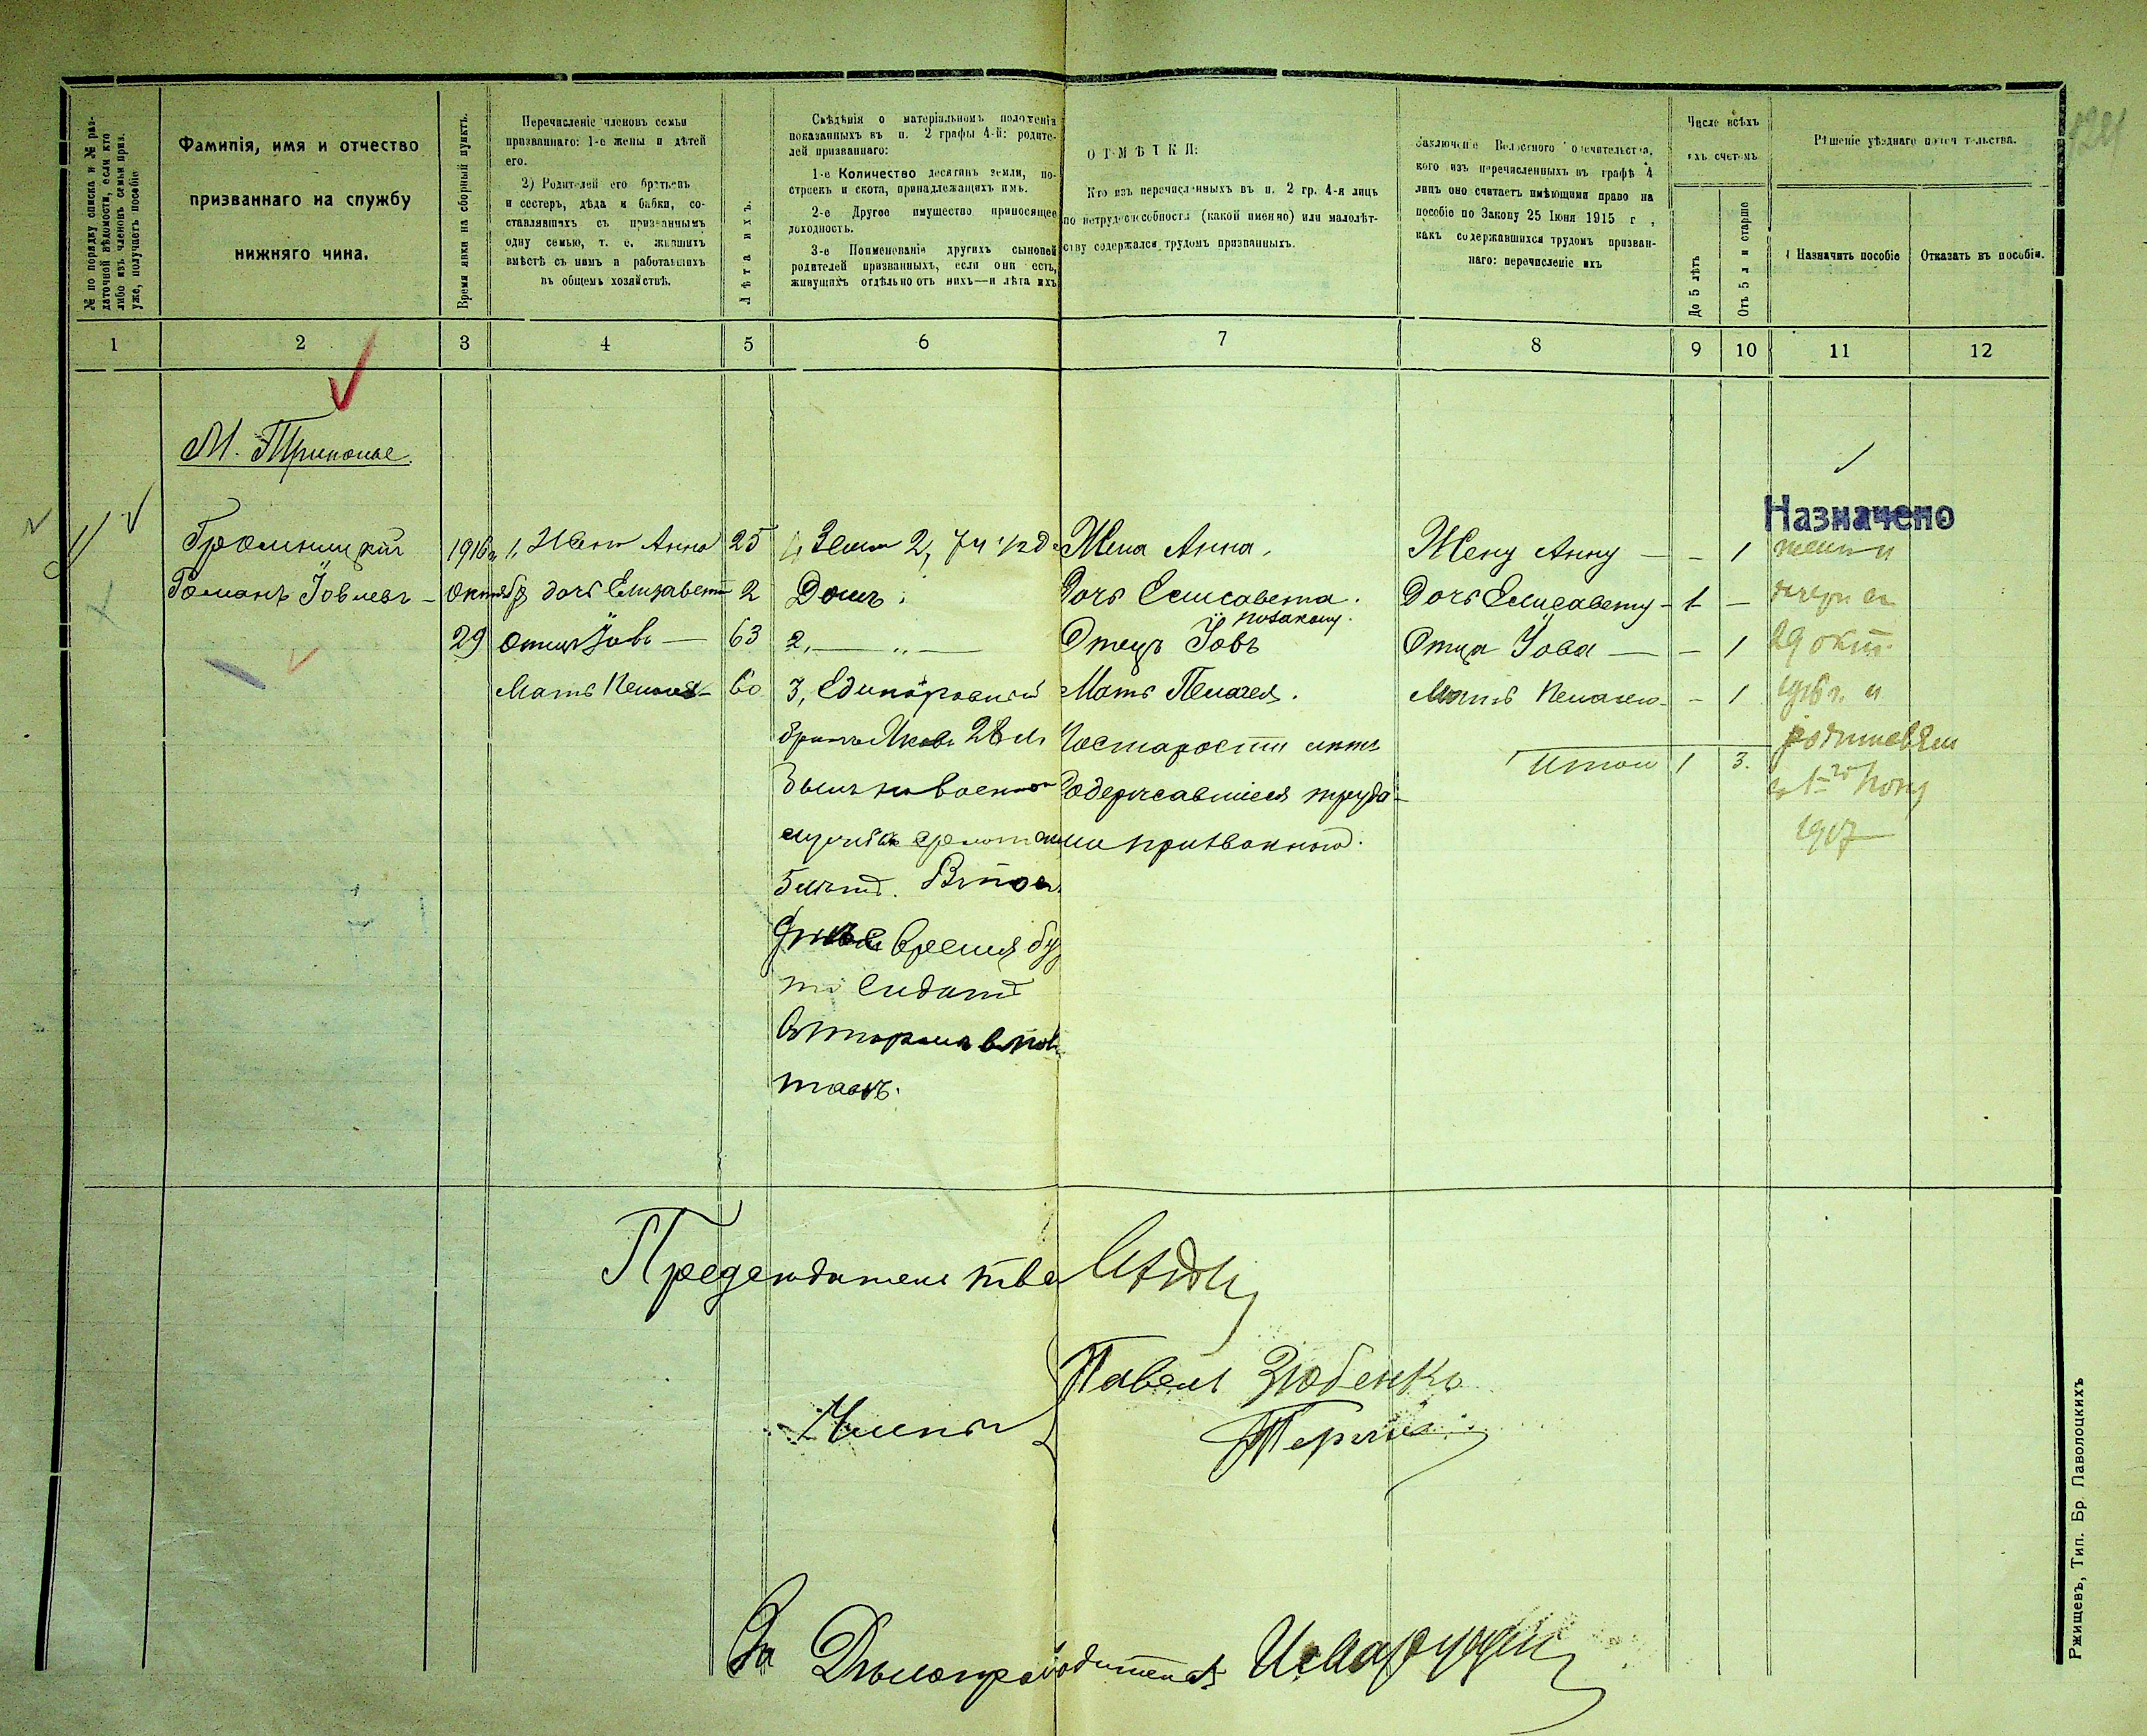 № по порядку списка и № раз-
даточной вѣдомости, если кто
либо изъ членовъ семьи приз.
уже, получаетъ пособіе
Фамилія, имя и отчество
призваннаго на службу
нижняго чина.
Время явки на сборный пунктъ.
Перечисленіе членовъ семьи
призваннаго: 1-е жены и дѣтей
его.
2) Родителей его братьевъ
и сестеръ, дѣда и бабки, со-
ставлявшихъ съ призваннымъ
одну семью, т. е. жившихъ
вмѣстѣ съ нимъ и работавшихъ
въ общемъ хозяйствѣ.
Лѣта ихъ.
Свѣдѣнія о матеріальномъ положеніи
показанныхъ въ п. 2 графы 4-й: родите-
лей призваннаго:
1-е Количество десятинъ земли, по-
строекъ и скота, принадлежащихъ имъ.
2-е Другое имущество приносящее
доходность.
3-е Поименованіе другихъ сыновей
родителей призванныхъ, если они есть,
живущихъ отдѣльно отъ нихъ—и лѣта ихъ
ОТМѢТКИ:
Кто изъ перечисленныхъ въ п. 2 гр. 4-я лицъ
по нетрудоспособности (какой именно) или малолѣт-
ству содержался трудомъ призванныхъ.
Заключеніе Волостного Попечительства,
кого изъ перечисленныхъ въ графѣ 4
лицъ оно считаетъ имѣющими право на
пособіе по Закону 25 Іюня 1915 г.,
какъ содержавшихся трудомъ призван-
наго: перечисленіе ихъ
Число всѣхъ
ихъ счетомъ
До 5 лѣтъ
Отъ 5 л и старше
Рѣшеніе уѣзднаго попечительства.
Назначить пособіе
Отказать въ пособіи.
1 2 3 4 5 6 7 8 9 10 11 12
М. Триполье.
Назначено
Громницкій 1916 г. 1, Жена Анна 25 1, Земли 2, Жена Анна. Жену Анну — – 1 жены и
Романъ Іовлевъ – октября дочь Елизавета 2 Домъ. Дочь Елисавета. Дочь Елисавету – 1 – дочери съ
29 отецъ Іовъ — 63 2, — „ — Отецъ Іовъ Отца Іова — – 1 29 окт.
Мать Пелагея 60 3, Единокровный Мать Пелагея. Мать Пелагею – 1 1916 г. и
братъ Яковъ 28 л. По старости лѣтъ Итого 1 3. родителям
былъ на военной содержавшіеся труда-
службѣ ми призваннаго. 1917
время
сидитъ
Предсѣдательств.
Члены
Павелъ Зюбенко
За Дѣлопроизводителя
124
Ржищевъ, Тип. Бр. Паволоцкихъ